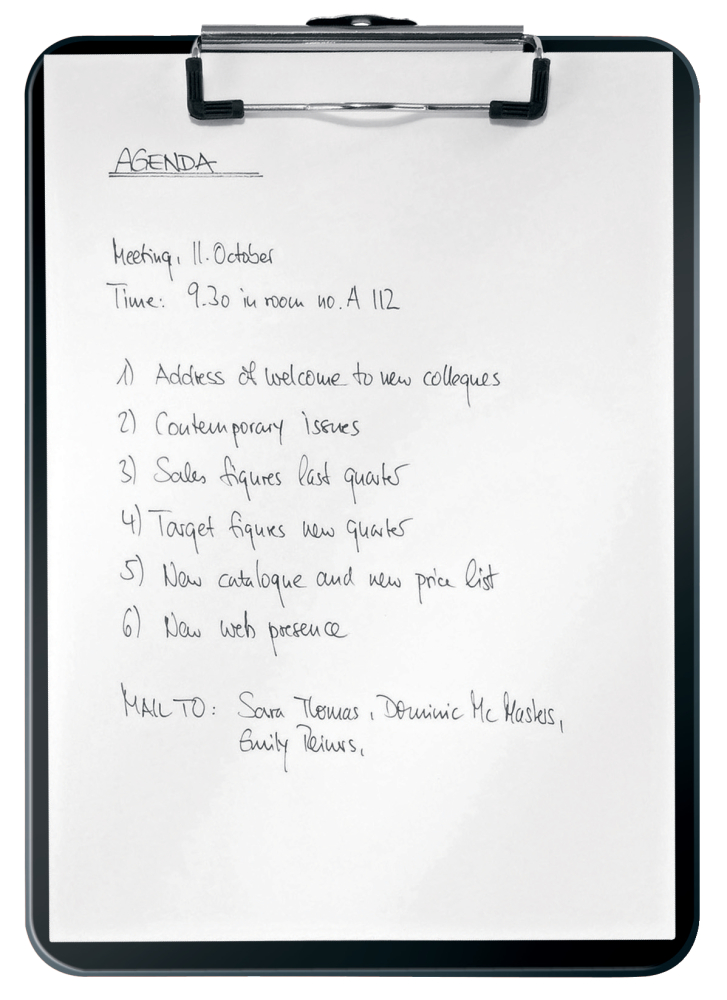 AGENDA
Meeting, 11. October
Time: 9.30 in room no. A 112
1) Address of welcome to new collegues
2) Contemporary issues
3) Sales figures last quarter
4) Target figures new quarter
5) New catalogue and new price list
6) New web presence
MAIL TO: Sara Thomas, Dominic Mc Masters,
Emily Reiners,